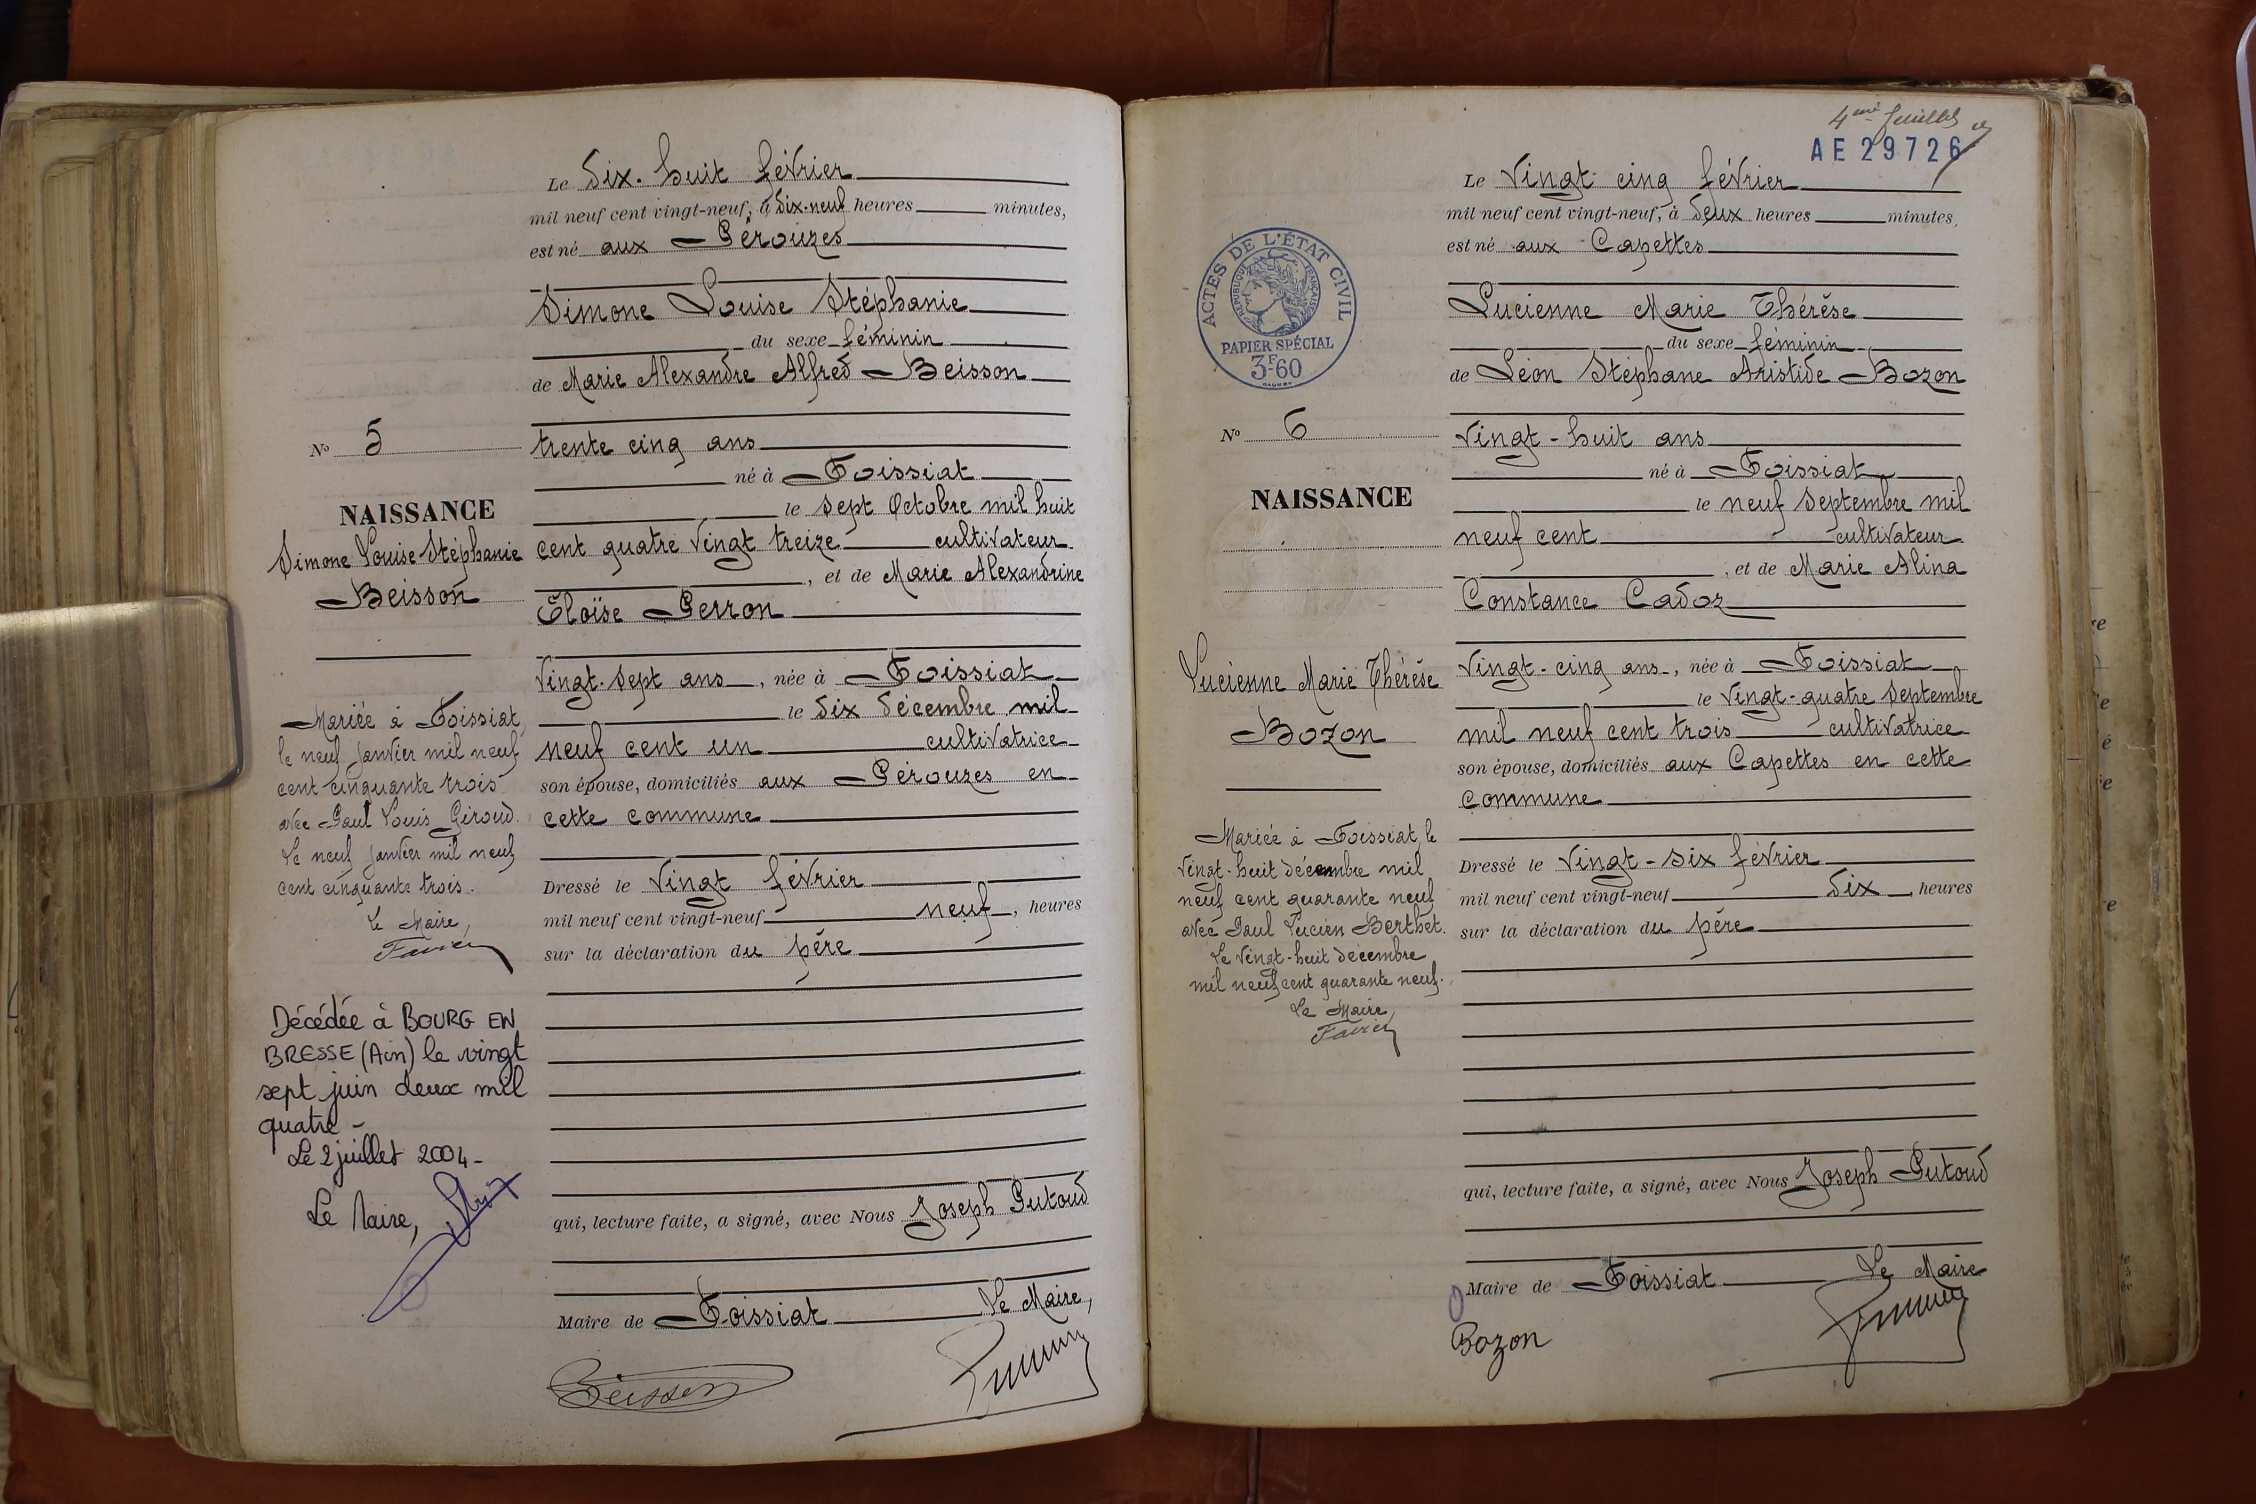 Le dix-huit février
mil neuf cent vingt-neuf, à dix-neuf heures minutes,
est né aux Pérouzes
Simone Louise Stéphanie
du sexe féminin
de Marie Alexandre Alfred Beisson
trente cinq ans
né à Foissiat
le sept Octobre mil huit
cent quatre vingt treize cultivateur
, et de Marie Alexandrine
Eloïse Perron
vingt-sept ans, née à Foissiat
le dix décembre mil
neuf cent un cultivatrice
son épouse, domiciliés aux Pérouzes en
cette commune
Dressé le vingt février
mil neuf cent vingt-neuf neuf, heures
sur la déclaration du père
qui, lecture faite, a signé, avec Nous Joseph Putoud
Maire de Foissiat Le Maire,
Beisson
No 5
NAISSANCE
Simone Louise Stéphanie
Beisson
Mariée à Foissiat,
le neuf janvier mil neuf
cent cinquante trois
avec Paul Louis Giroud.
Le neuf janvier mil neuf
cent cinquante trois.
Le Maire,
Favier
Décédée à BOURG EN
BRESSE (Ain) le vingt
sept juin deux mil
quatre -
Le 2 juillet 2004 -
Le Maire,
4me feuillet
AE 29726
Le vingt-cinq février
mil neuf cent vingt-neuf, à deux heures minutes,
est né aux Capettes
Lucienne Marie Thérèse
du sexe féminin
de Léon Stéphane Aristide Bozon
vingt-huit ans
né à Foissiat
le neuf septembre mil
neuf cent cultivateur
, et de Marie Alina
Constance Cadoz
vingt-cinq ans, née à Foissiat
le vingt-quatre septembre
mil neuf cent trois cultivatrice
son épouse, domiciliés aux Capettes en cette
commune
Dressé le vingt-six février
mil neuf cent vingt-neuf dix, heures
sur la déclaration du père
qui, lecture faite, a signé, avec Nous Joseph Putoud
Maire de Foissiat Le Maire
Bozon
ACTES DE L'ÉTAT CIVIL
RÉPUBLIQUE FRANÇAISE
PAPIER SPÉCIAL
3F60
No 6
NAISSANCE
Lucienne Marie Thérèse
Bozon
Mariée à Foissiat le
vingt-huit décembre mil
neuf cent quarante neuf
avec Paul Lucien Berthet.
Le vingt-huit décembre
mil neuf cent quarante neuf.
Le Maire,
Favier